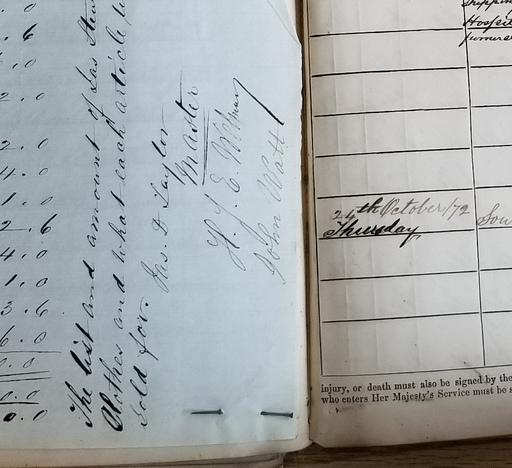 6
.0
2.0
2.0
4.0
1.0
2.6
4.0
1.0
3.6
6.0
0.0
0.0
0.0
The list and amount of Jas Stew
Clothes and what each article
Sold for.
Jas. D Taylor
Master
H. J. E.
John Watt
Hospit
funera
24th October/72
Thursday
Sou
injury, or death must also be signed by the
who enters Her Majesty's Service must be s